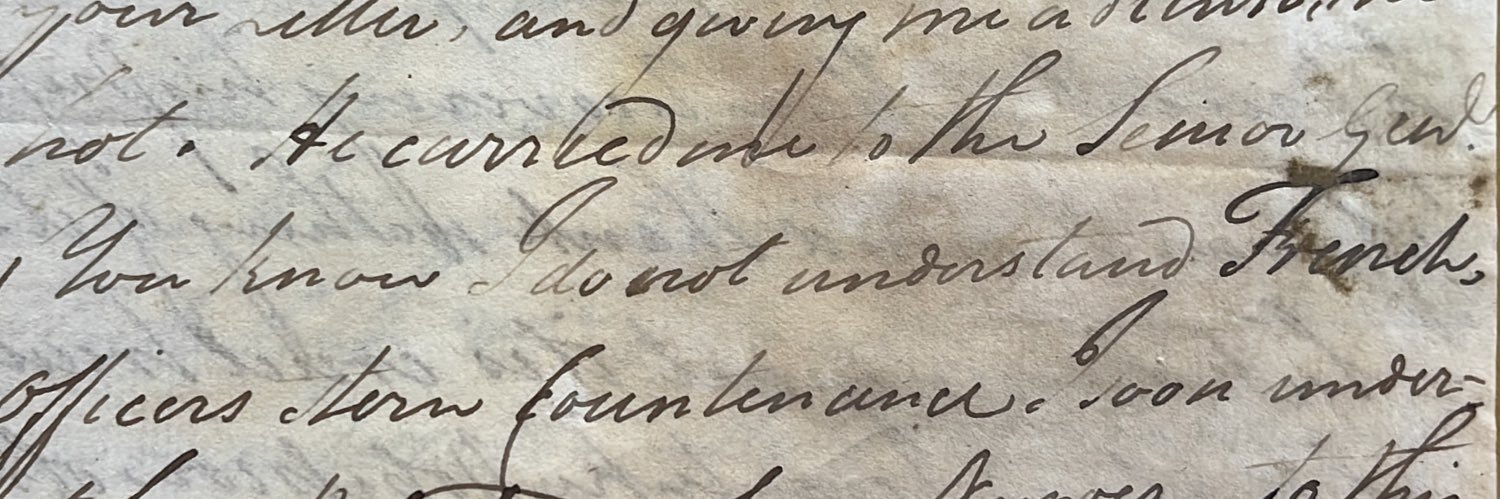 your Letter, and giving me a
not. He carried me to the Senior Genl.
, You know I do not understand French,
officers stern Countenance. I soon under-
to this